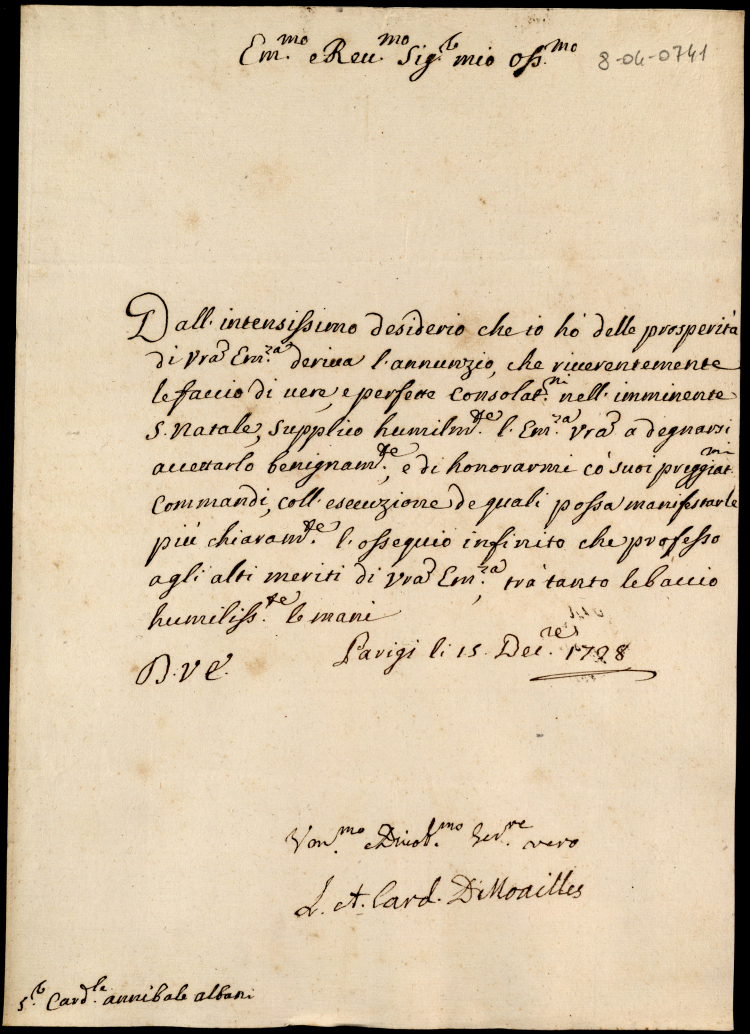 Em.mo e Reu.mo Sig.r mio Oss.mo
8-04-0741
Dall' intensissimo desiderio che io hó delle prosperità
di Vra Em.za deriua l'annunzio, che riuerentemente
le faccio di uere, e perfette Consolat.ni nell' imminente
S. Natale, Supplico humilm.te l' Em.za Vra a degnarsi
accettarlo benignam.te, e di honorarmi có suoi preggiat.mi
Commandi, coll' esecuzione de quali possa manifestarle
più chiaram.te l'ossequio infinito che professo
agli alti meriti di Vra Em.za, trà tanto le baccio
humiliss.te le mani
Parigi li 15. Dec.re 1728
D. V. E.
mo mo Ser.re vero
L. A. Card. De Noailles
S.r Card.le annibale albani